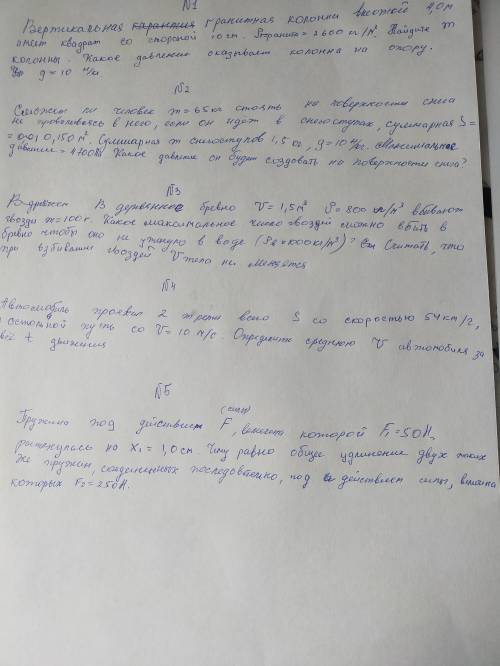 N1
Вертикальная гранитная колонна высотой 4,0м
имеет квадрат со стороной 10см. Sгранита = 2600 кг/м³. Найдите m
колонны. Какое давление оказывает колонна на опору.
g = 10 н/кг
N2
Сможет ли человек m = 65кг стоять на поверхности снега
не проваливаясь в него, если он идёт в снегоступах, суммарная S =
= 0,150м². Суммарная m снегоступов 1,5кг, g = 10 н/кг. Максимальное
давление = Какое давление он будет создавать на поверхности снега?
N3
В деревянное бревно V = 1,5м³ S = 800 кг/м³ вбивают
гвозди m = 100г. Какое максимальное число гвоздей можно вбить в
бревно чтобы оно не утонуло в воде (Sв = 1000кг/м³)? Считать, что
при вбивании гвоздей V тела не меняется
N4
Автомобиль проехал 2 трети всего S со скоростью 54км/ч,
а остальной путь со V = 10 м/с. Определите среднюю V автомобиля за
всё t движения
N5
(силы)
Пружина под действием F, величина которой F₁ = 50Н,
растянулась на X₁ = 1,0см. Чему равно общее удлинение двух таких
же пружин, соединённых последовательно, под действием силы, величина
которых F₂ = 250Н.